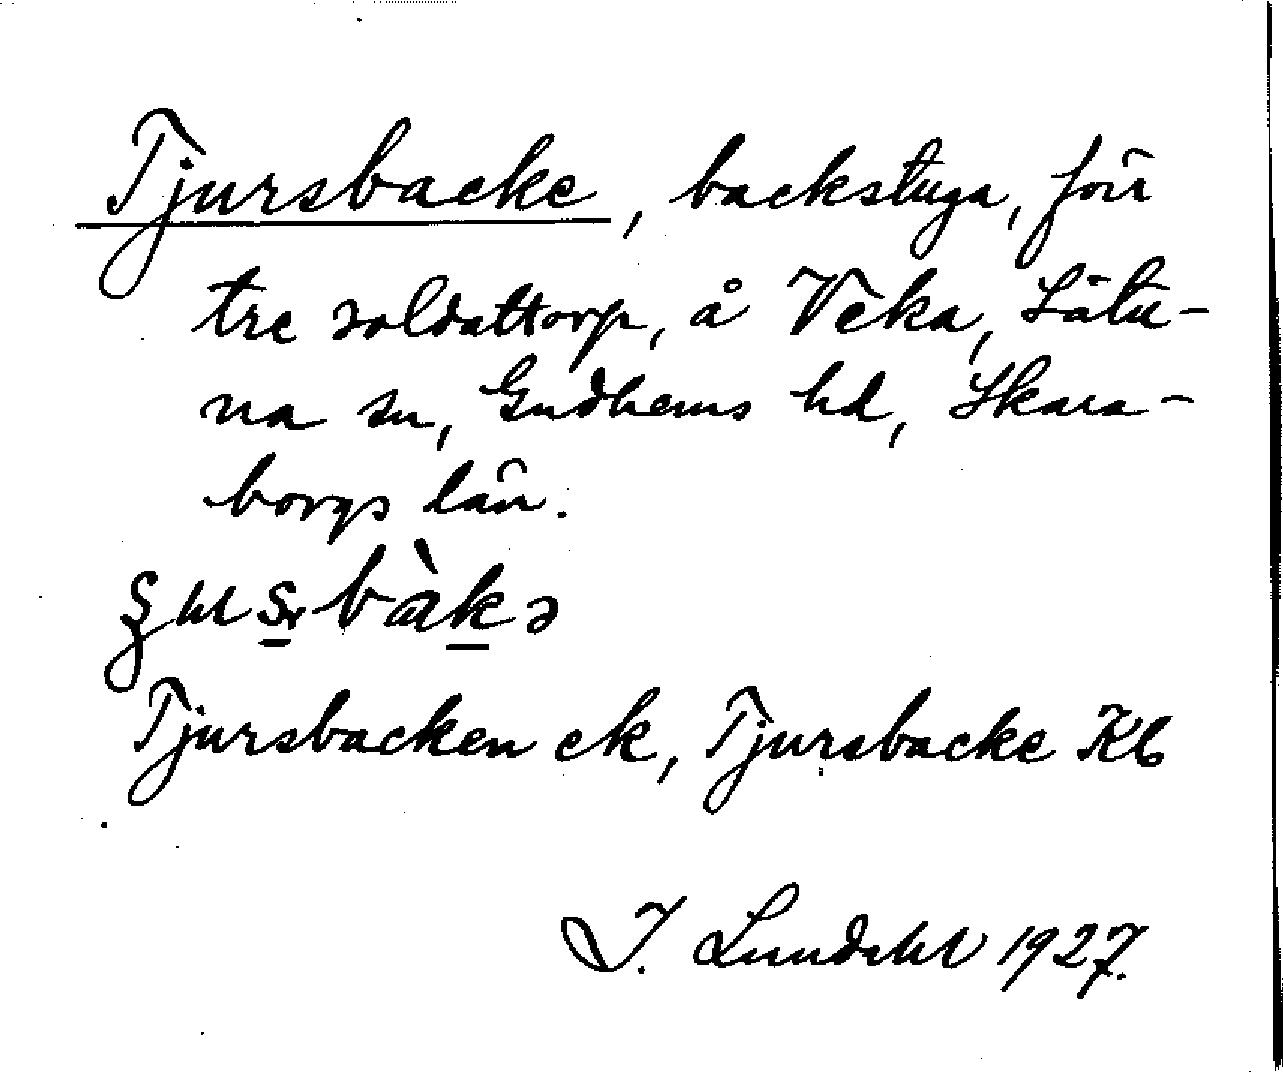 Tjursbacke, backstuga, förr
tre soldattorp, å Veka, Låtu-
na sn, Gudhems hd, Skara-
borgs län.
Tjursbacken ek, Tjursbacke Kb
I. Lundahl 1927.